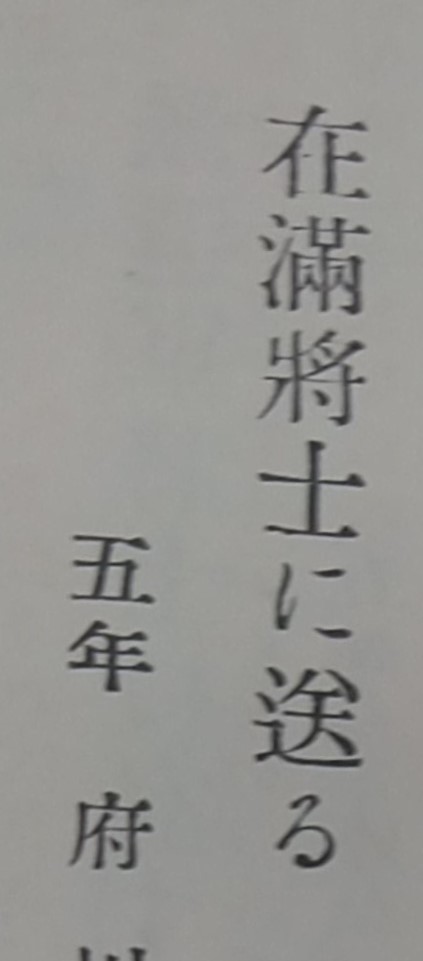 在滿將士に送る
五年 府